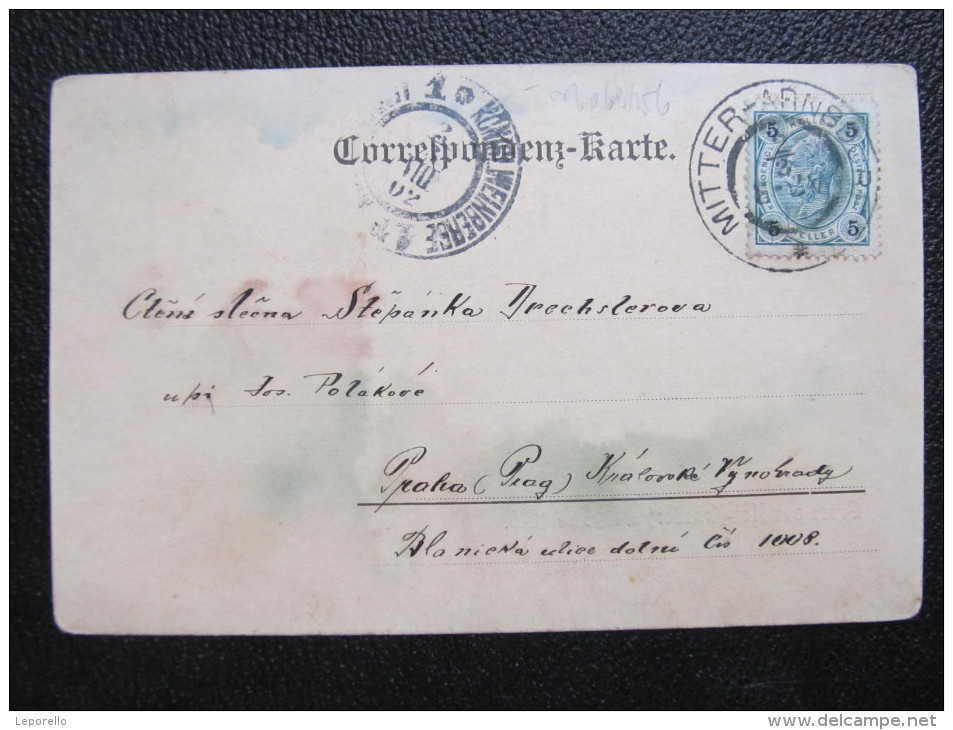 Correspondenz-Karte.
1 * KÖNIGL. WEINBERGE 1
2
VIII
02
MITTER-ARNS
*
5 5
HELLER
5 5
Ctěná slečna Štěpánka Drechslerova
u pí Jos. Polákové
Praha (Prag) Královské Vynohrady
Blanická ulice dolní čís 1008.
Leporello
www.delcampe.net